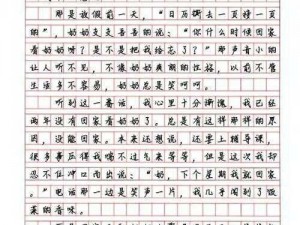 那是放假前一天，“日历撕去一页婧一页
的”，奶奶支支吾吾的说：“你什么时候回家
看奶奶呀？是不是把我给忘了？”那声音小的
让人听不见，不像奶奶爽朗的性格，以前不管
生活多不容易，奶奶总是笑呵呵。
听到这一番话，我心里十分惭愧，我已经
两年没有回家看奶奶了。总是有这样那样的原
因，没能回家。本来还想说，还要上辅导课，
很多事压得我喘不过气来，等等，但是这次我却
忍不住冲口而出说：“奶，下个星期我就回家
。”电话那一边是笑声一片，我几乎闻到了饭
菜的香味。